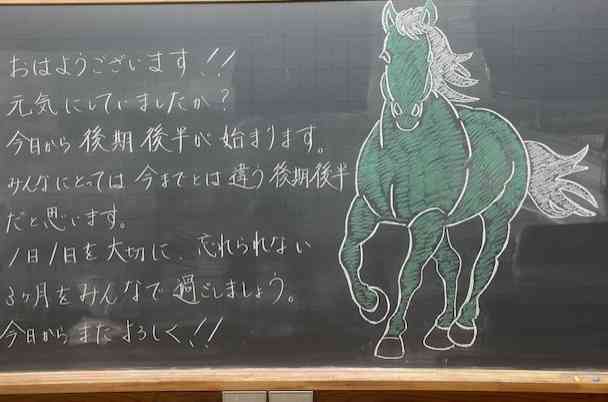 おはようございます!!
元気にしていましたか？
今日から後期後半が始まります。
みんなにとっては今までとは違う後期後半
だと思います。
1日1日を大切に、忘れられない
3ヶ月をみんなで過ごしましょう。
今日からまたよろしく!!